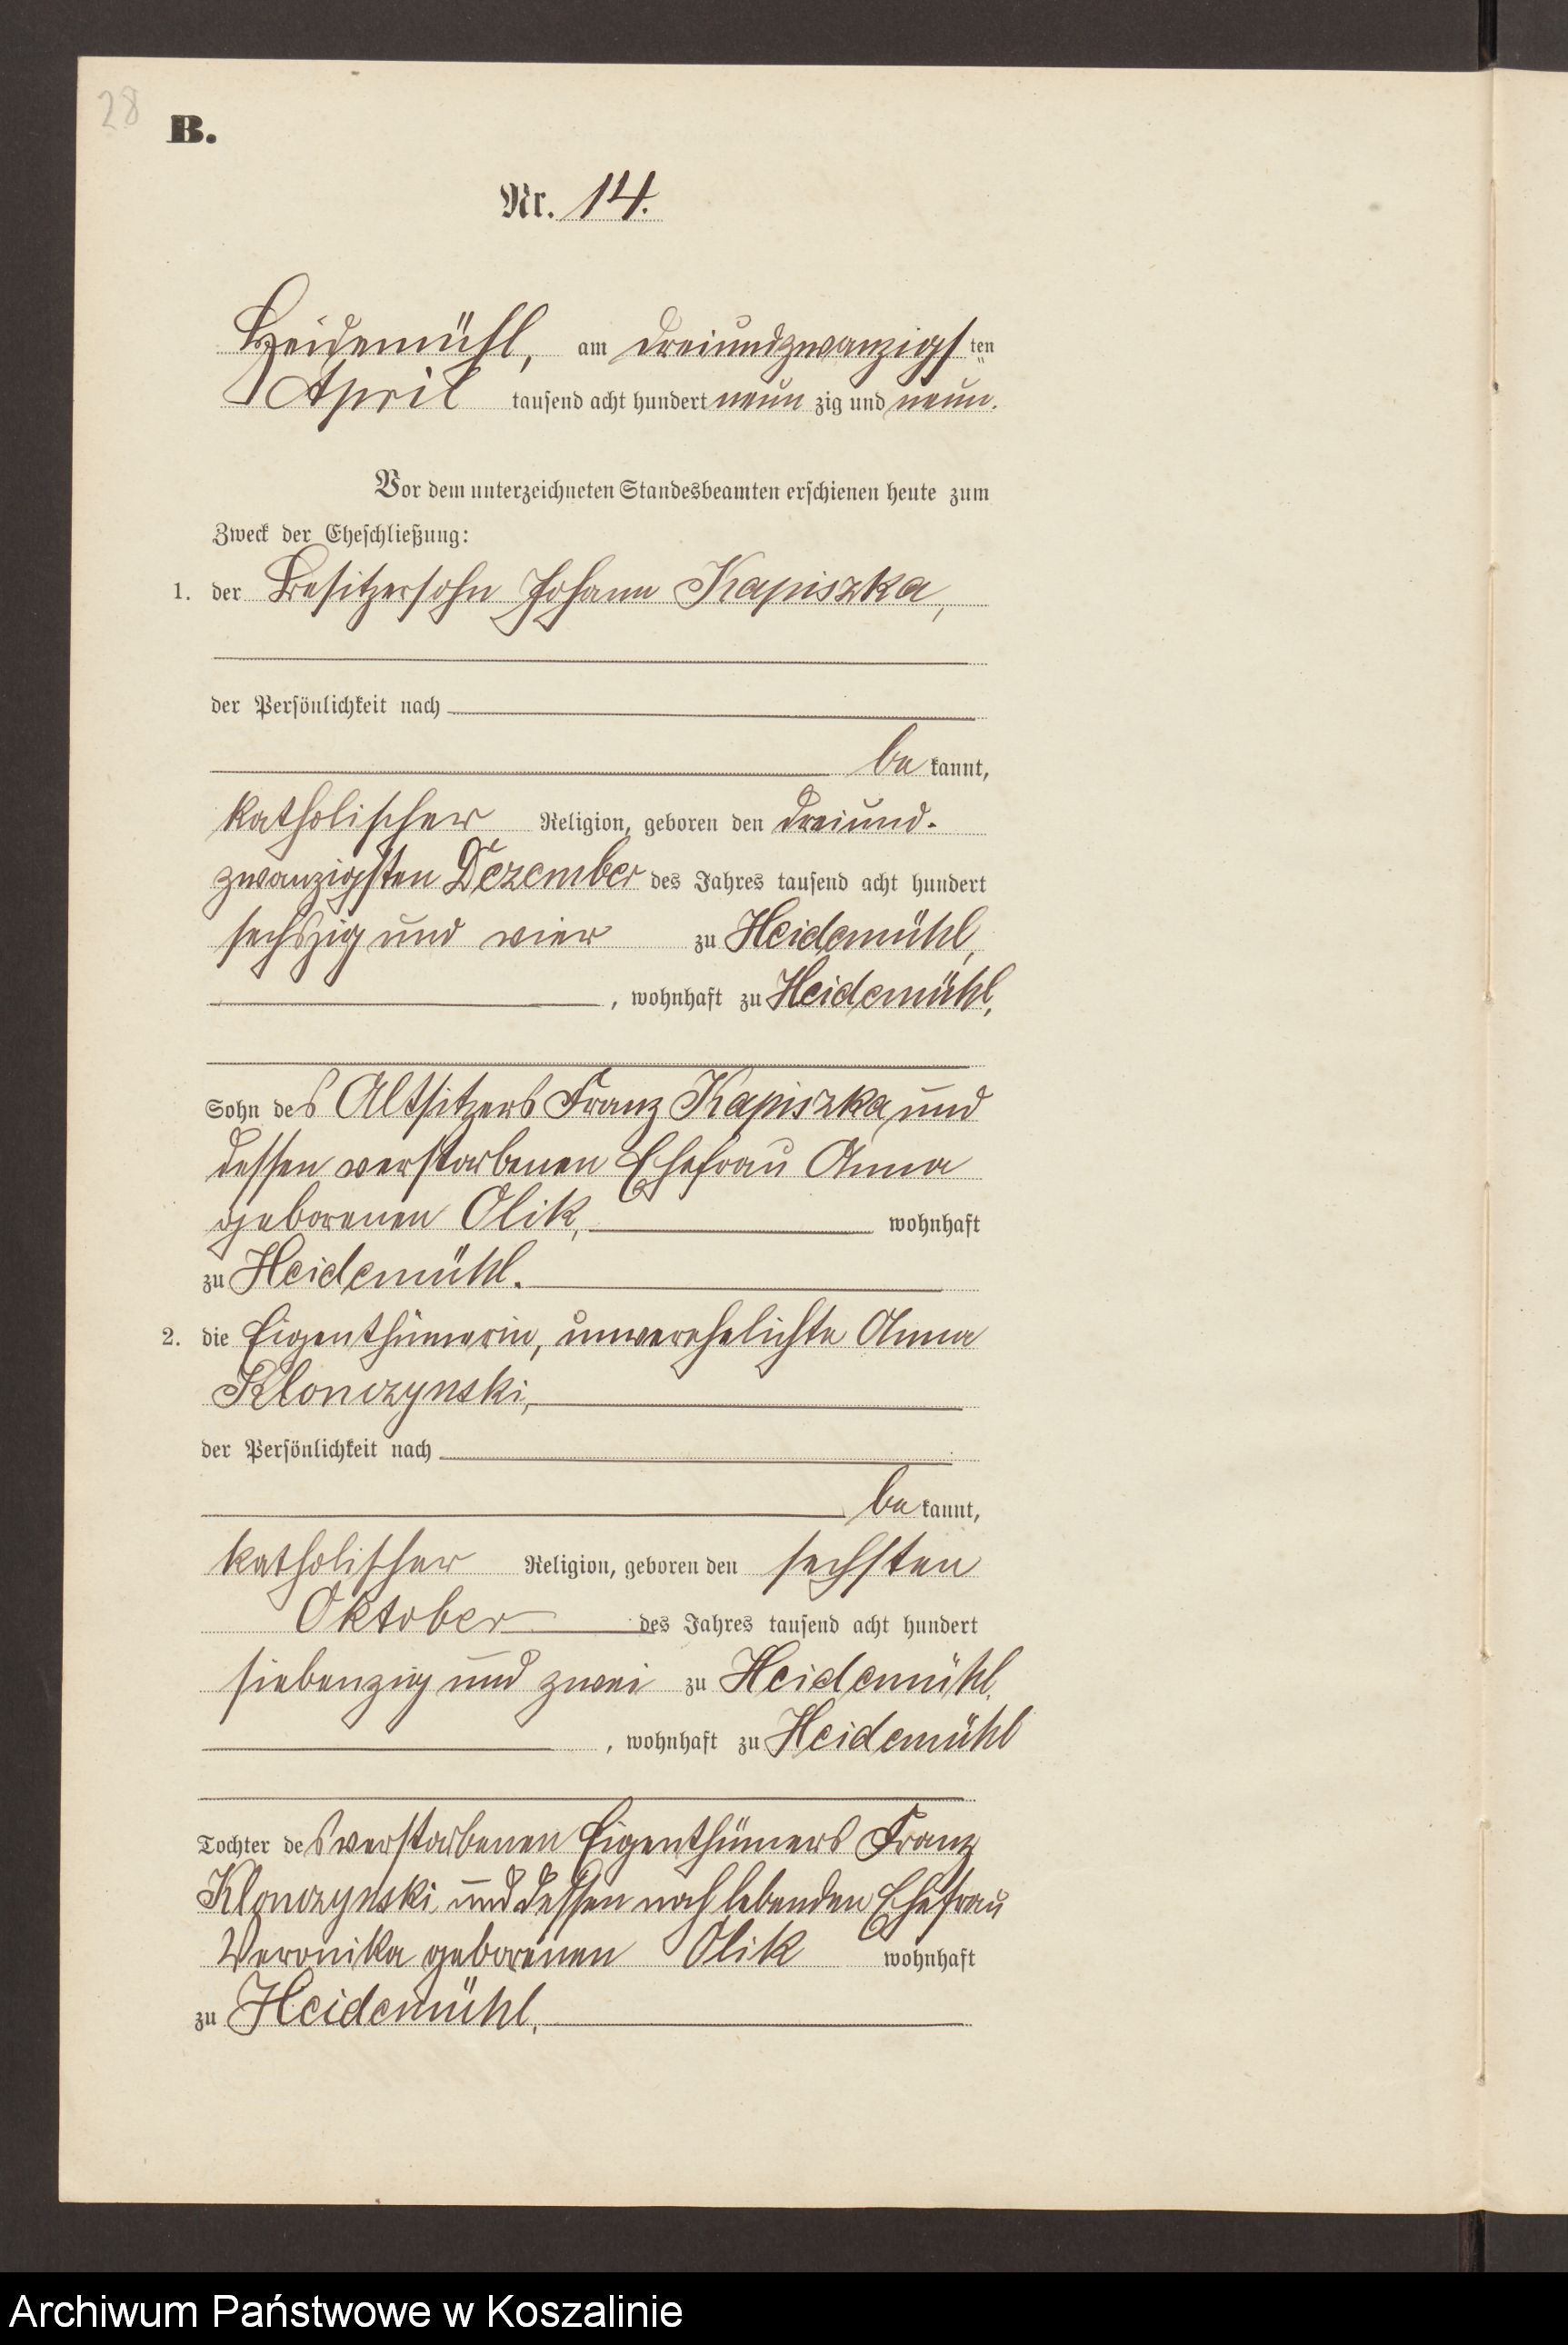 28
B.
Nr. 14.
Heidemühl, am dreiundzwanzigsten
April tausend acht hundert neunzig und neun.
Vor dem unterzeichneten Standesbeamten erschienen heute zum
Zweck der Eheschließung:
1. der Besitzersohn Johann Kapiszka,
der Persönlichkeit nach
bekannt,
katholischer Religion, geboren den dreiund-
zwanzigsten Dezember des Jahres tausend acht hundert
sechszig und vier zu Heidemühl,
, wohnhaft zu Heidemühl,
Sohn des Altsitzers Franz Kapiszka und
dessen verstorbenen Ehefrau Anna
geborenen Olik, wohnhaft
zu Heidemühl.
2. die Eigenthümerin, unverehelichte Anna
Klonczynski,
der Persönlichkeit nach
bekannt,
katholischer Religion, geboren den sechsten
Oktober des Jahres tausend acht hundert
siebenzig und zwei zu Heidemühl,
, wohnhaft zu Heidemühl
Tochter des verstorbenen Eigenthümers Franz
Klonczynski und dessen noch lebenden Ehefrau
Veronika geborenen Olik wohnhaft
zu Heidemühl.
Archiwum Państwowe w Koszalinie